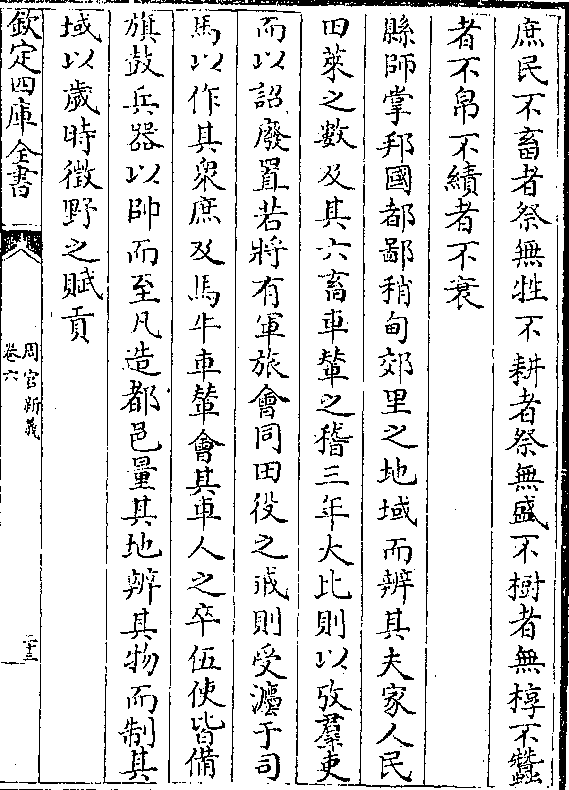 庶民不畜者祭無牲不耕者祭無盛不樹者無椁不蠶
者不帛不績者不衰
縣師掌邦國都鄙稍甸郊里之地域而辨其夫家人民
田萊之數及其六畜車輦之稽三年大比則以攷羣吏
而以詔廢置若將有軍旅會同田役之戒則受灋于司
馬以作其衆庶及馬牛車輦會其車人之卒伍使皆備
旗鼓兵器以帥而至凡造都邑量其地辨其物而制其
域以歲時徵野之賦貢
欽定四庫全書
周官新義
卷六
二十三